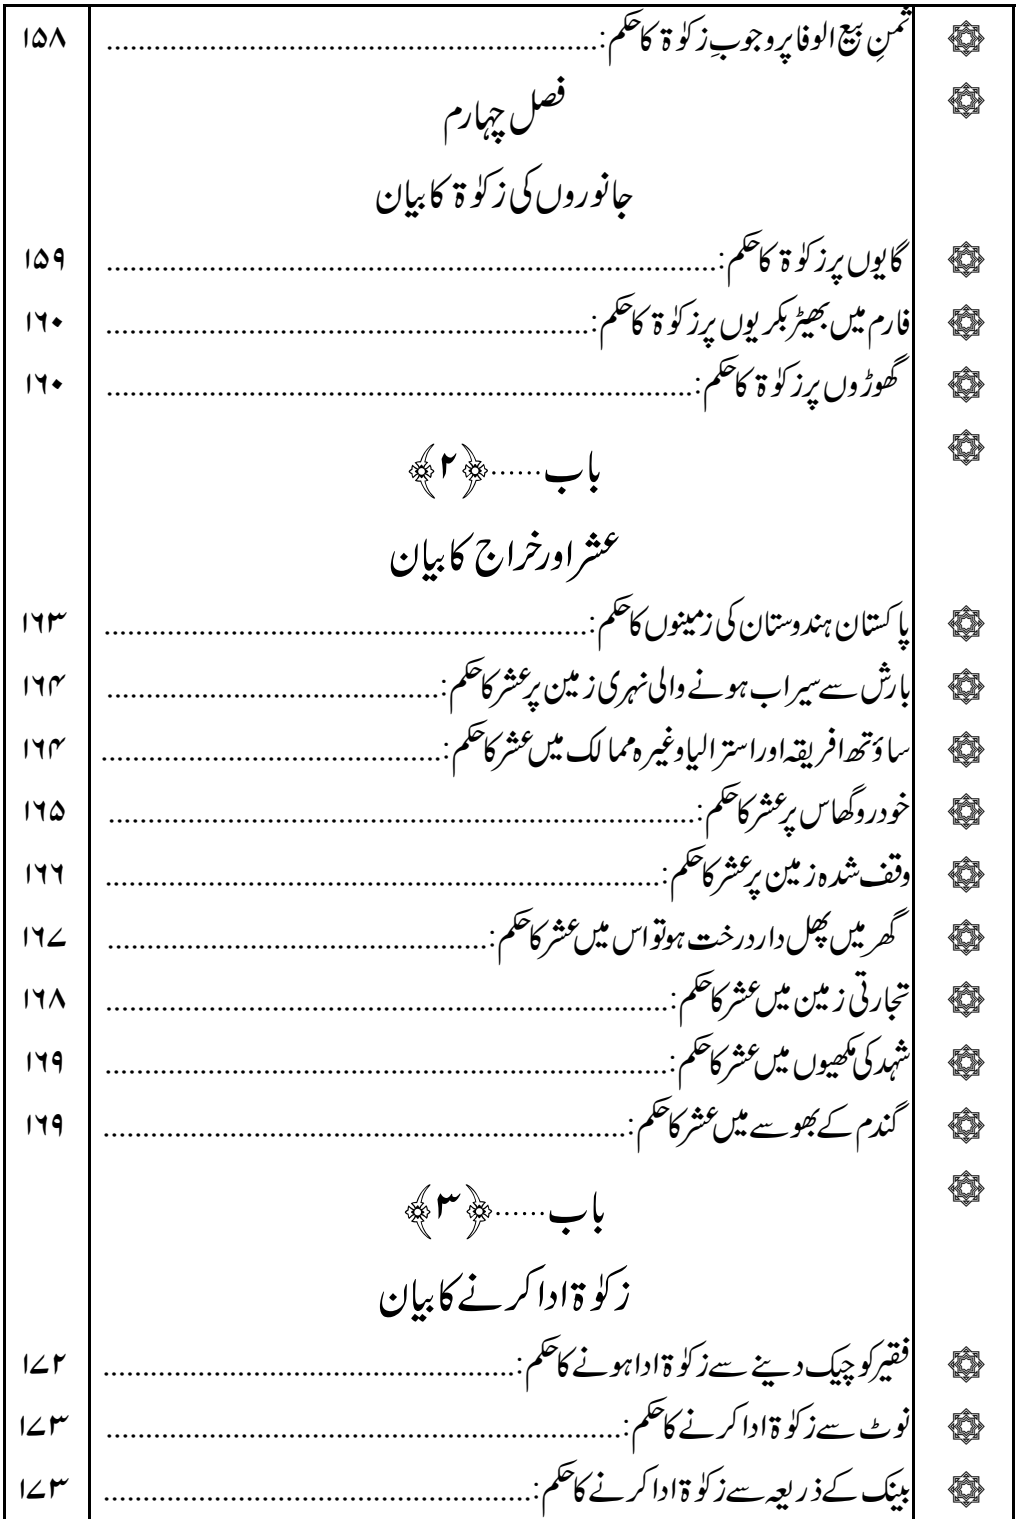 ثمنِ بیع الوفا پر وجوبِ زکوٰة کا حکم:.............................................................. ۱۵۸
فصل چہارم
جانوروں کی زکوٰة کا بیان
گایوں پر زکوٰة کا حکم:.............................................................................. ۱۵۹
فارم میں بھیڑ بکریوں پر زکوٰة کا حکم:.............................................................. ۱۶۰
گھوڑوں پر زکوٰة کا حکم:........................................................................... ۱۶۰
باب......﴿۲﴾
عشر اور خراج کا بیان
پاکستان ہندوستان کی زمینوں کا حکم:.............................................................. ۱۶۳
بارش سے سیراب ہونے والی نہری زمین پر عشر کا حکم:.......................................... ۱۶۴
ساؤتھ افریقہ اور استرالیا وغیرہ ممالک میں عشر کا حکم:........................................... ۱۶۴
خودرو گھاس پر عشر کا حکم:........................................................................... ۱۶۵
وقف شدہ زمین پر عشر کا حکم:....................................................................... ۱۶۶
گھر میں پھل دار درخت ہو تو اس میں عشر کا حکم:................................................ ۱۶۷
تجارتی زمین میں عشر کا حکم:........................................................................ ۱۶۸
شہد کی مکھیوں میں عشر کا حکم:........................................................................ ۱۶۹
گندم کے بھوسے میں عشر کا حکم:................................................................... ۱۶۹
باب......﴿۳﴾
زکوٰة ادا کرنے کا بیان
فقیر کو چیک دینے سے زکوٰة ادا ہونے کا حکم:..................................................... ۱۷۲
نوٹ سے زکوٰة ادا کرنے کا حکم:.................................................................. ۱۷۳
بینک کے ذریعہ سے زکوٰة ادا کرنے کا حکم:....................................................... ۱۷۳